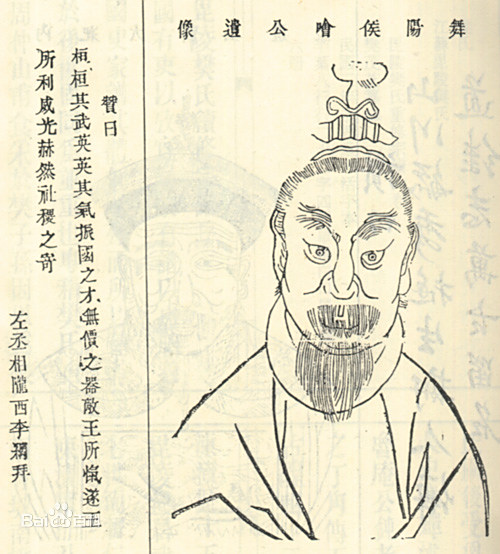 舞陽侯噲公遺像
贊曰
桓桓其武英英其氣振國之才無價之器敵王所愾遂
所利威光赫然社稷之寄
左丞相隴西李拜
Bai百科